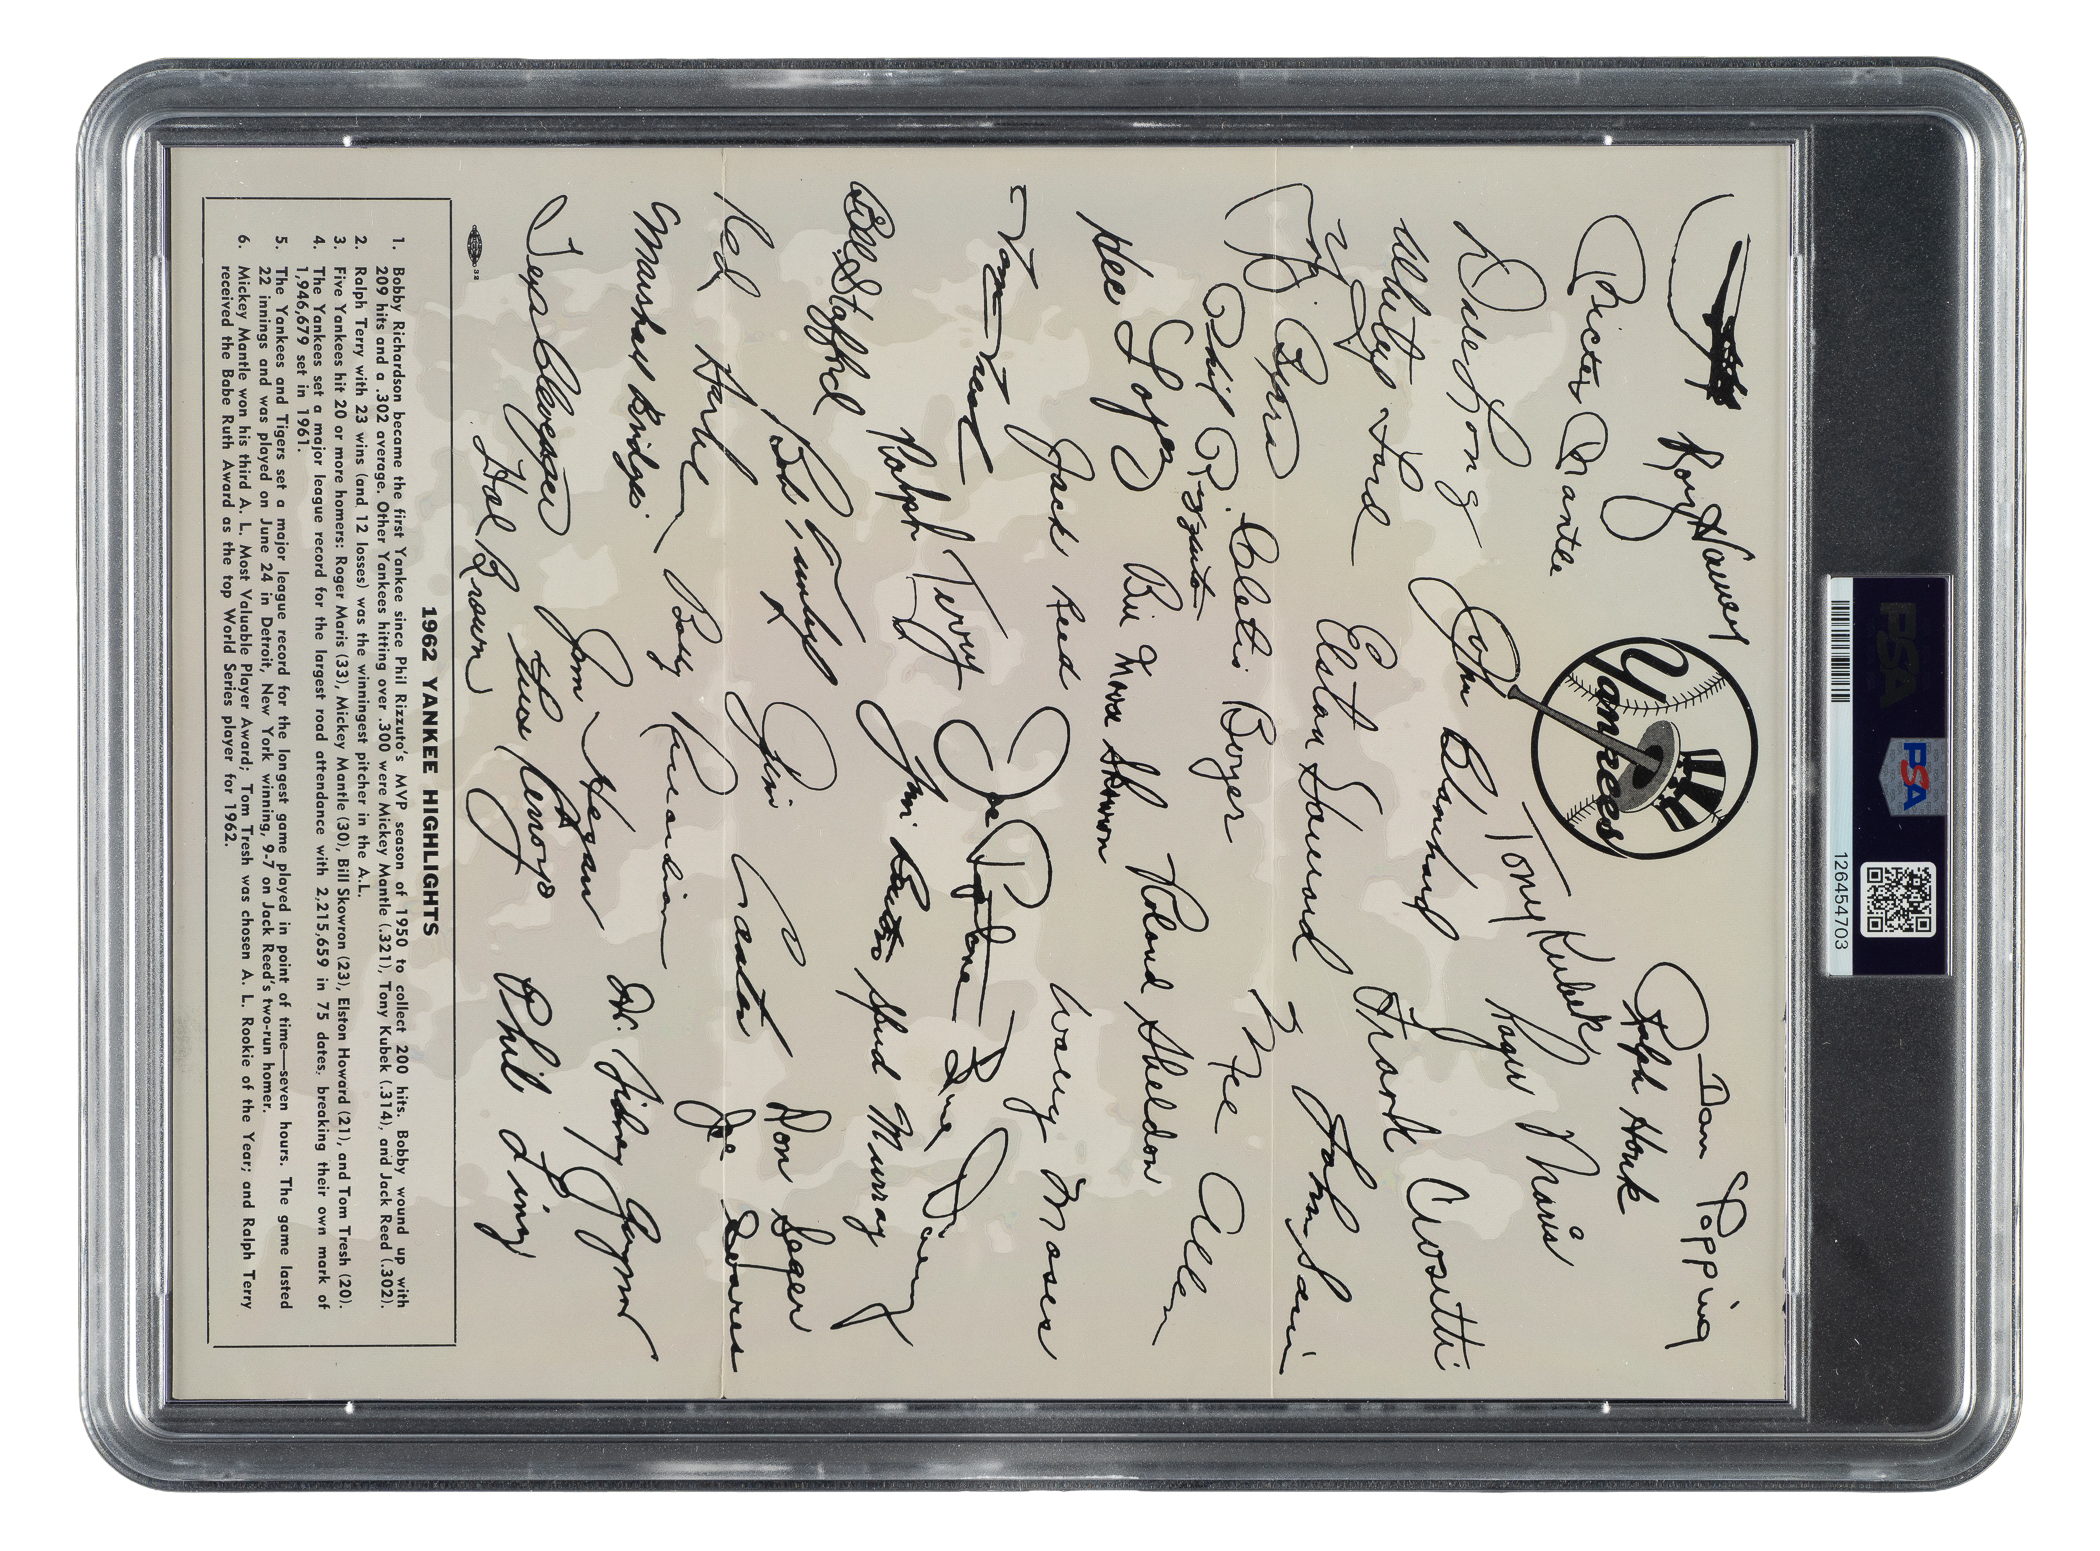 PSA
PSA
126454703
Roy Hamey
Dan Topping
Ralph Houk
Mickey Mantle
Yankees
Tony Kubek
Roger Maris
Dale Long
John Blanchard
Frank Crosetti
Whitey Ford
Elston Howard
John Sain
Yogi Berra
Cletis Boyer
Mel Allen
Phil Rizzuto
Hec Lopez
Bill Moose Skowron
Roland Sheldon
Jack Reed
Wally Moses
Tom Tresh
Joe Pepitone
Bill Stafford
Ralph Terry
Jim Bouton
Spud Murray
Bob Turley
Jim Coates
Red
Joe Soares
Marshall Bridges
Bobby Richardson
Dr. Sidney Gaynor
Jim Hegan
Tex Clevenger
Luis Arroyo
Phil Linz
Hal Brown
32
1962 YANKEE HIGHLIGHTS
1. Bobby Richardson became the first Yankee since Phil Rizzuto's MVP season of 1950 to collect 200 hits. Bobby wound up with
209 hits and a .302 average. Other Yankees hitting over .300 were Mickey Mantle (.321), Tony Kubek (.314), and Jack Reed (.302).
2. Ralph Terry with 23 wins (and 12 losses) was the winningest pitcher in the A.L.
3. Five Yankees hit 20 or more homers: Roger Maris (33), Mickey Mantle (30), Bill Skowron (23), Elston Howard (21), and Tom Tresh (20).
4. The Yankees set a major league record for the largest road attendance with 2,215,659 in 75 dates, breaking their own mark of
1,946,679 set in 1961.
5. The Yankees and Tigers set a major league record for the longest game played in point of time—seven hours. The game lasted
22 innings and was played on June 24 in Detroit, New York winning, 9-7 on Jack Reed's two-run homer.
6. Mickey Mantle won his third A. L. Most Valuable Player Award; Tom Tresh was chosen A. L. Rookie of the Year; and Ralph Terry
received the Babe Ruth Award as the top World Series player for 1962.